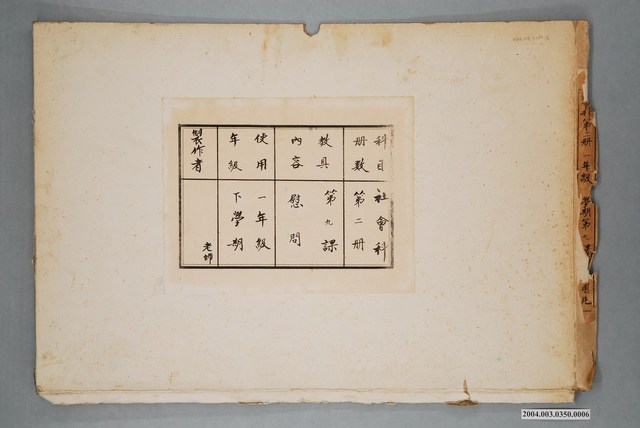 科目 社會科
册数 第二册
教具 第九課
內容 慰問
使用 一年級
年級 下學期
製作者 老師
第二册 一年級 學期第
2004.003.0350.0006